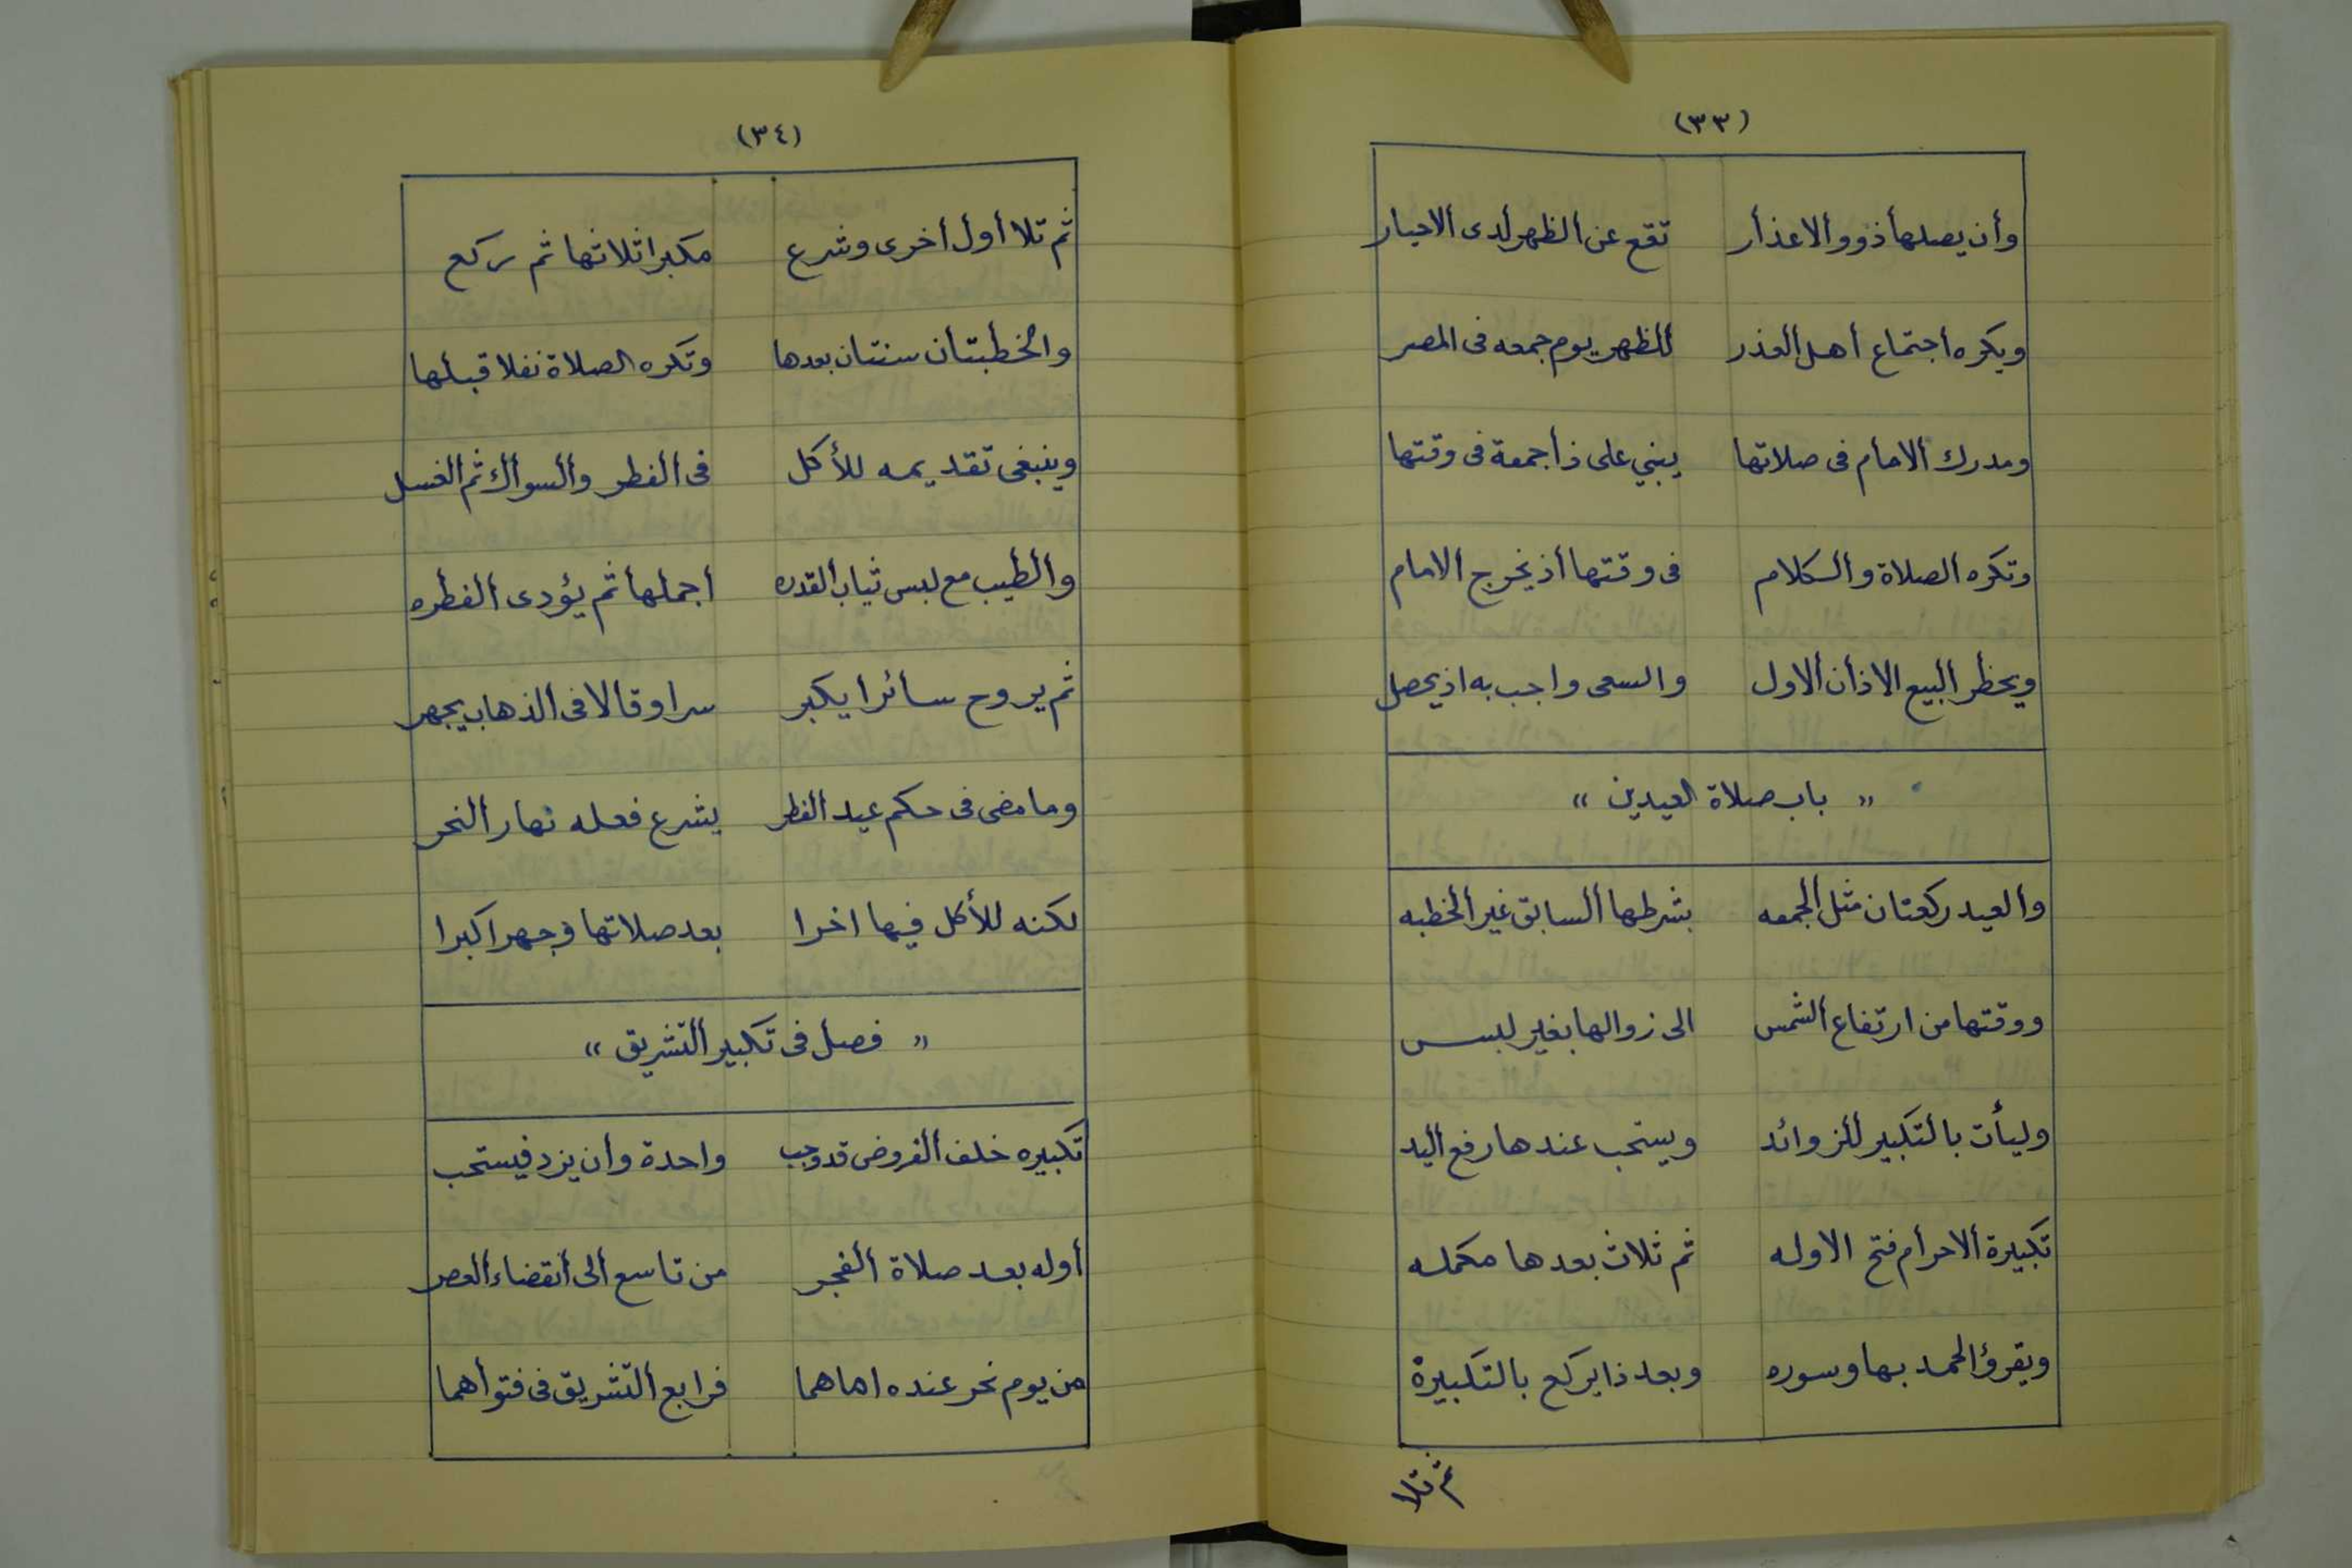 (٣٣)
وأن يصلها ذوو الاعذار تقع عن الظهر لدى الاحبار
ويكره اجتماع أهل العذر للظهر يوم جمعه فى المصر
ومدرك الامام فى صلاتها يبني على ذا جمعة فى وقتها
وتكره الصلاة والكلام فى وقتها أذ يخرج الامام
ويحظر البيع الاذان الاول والسعى واجب به اذ يحصل
" باب صلاة العيدين "
والعيد ركعتان مثل الجمعه بشرطها السابق غير الخطبه
ووقتها من ارتفاع الشمس الى زوالها بغير لبس
وليأت بالتكبير للزوائد ويستحب عندها رفع اليد
تكبيرة الاحرام فتح الاوله ثم ثلاث بعدها مكمله
ويقرؤ الحمد بها وسوره وبعد ذا يركع بالتكبيرة
ثم تلا
(٣٤)
ثم تلا أول أخرى وشرع مكبرا ثلاثها ثم ركع
والخطبتان سنتان بعدها وتكره الصلاة نفلا قبلها
وينبغى تقديمه للأكل فى الفطر والسواك ثم الغسل
والطيب مع لبس ثياب القدره اجملها ثم يؤدى الفطره
ثم يروح سائرا يكبر سرا وقالا فى الذهاب يجهر
وما مضى فى حكم عيد الفطر يشرع فعله نهار النحر
لكنه للأكل فيها اخرا بعد صلاتها وجهرا كبرا
" فصل فى تكبير التشريق "
تكبيره خلف الفروض قد وجب واحدة وان يزد فيستحب
أوله بعد صلاة الفجر من تاسع الى أنقضاء العصر
من يوم نحر عنده اماهما فرابع التشريق فى فتواهما